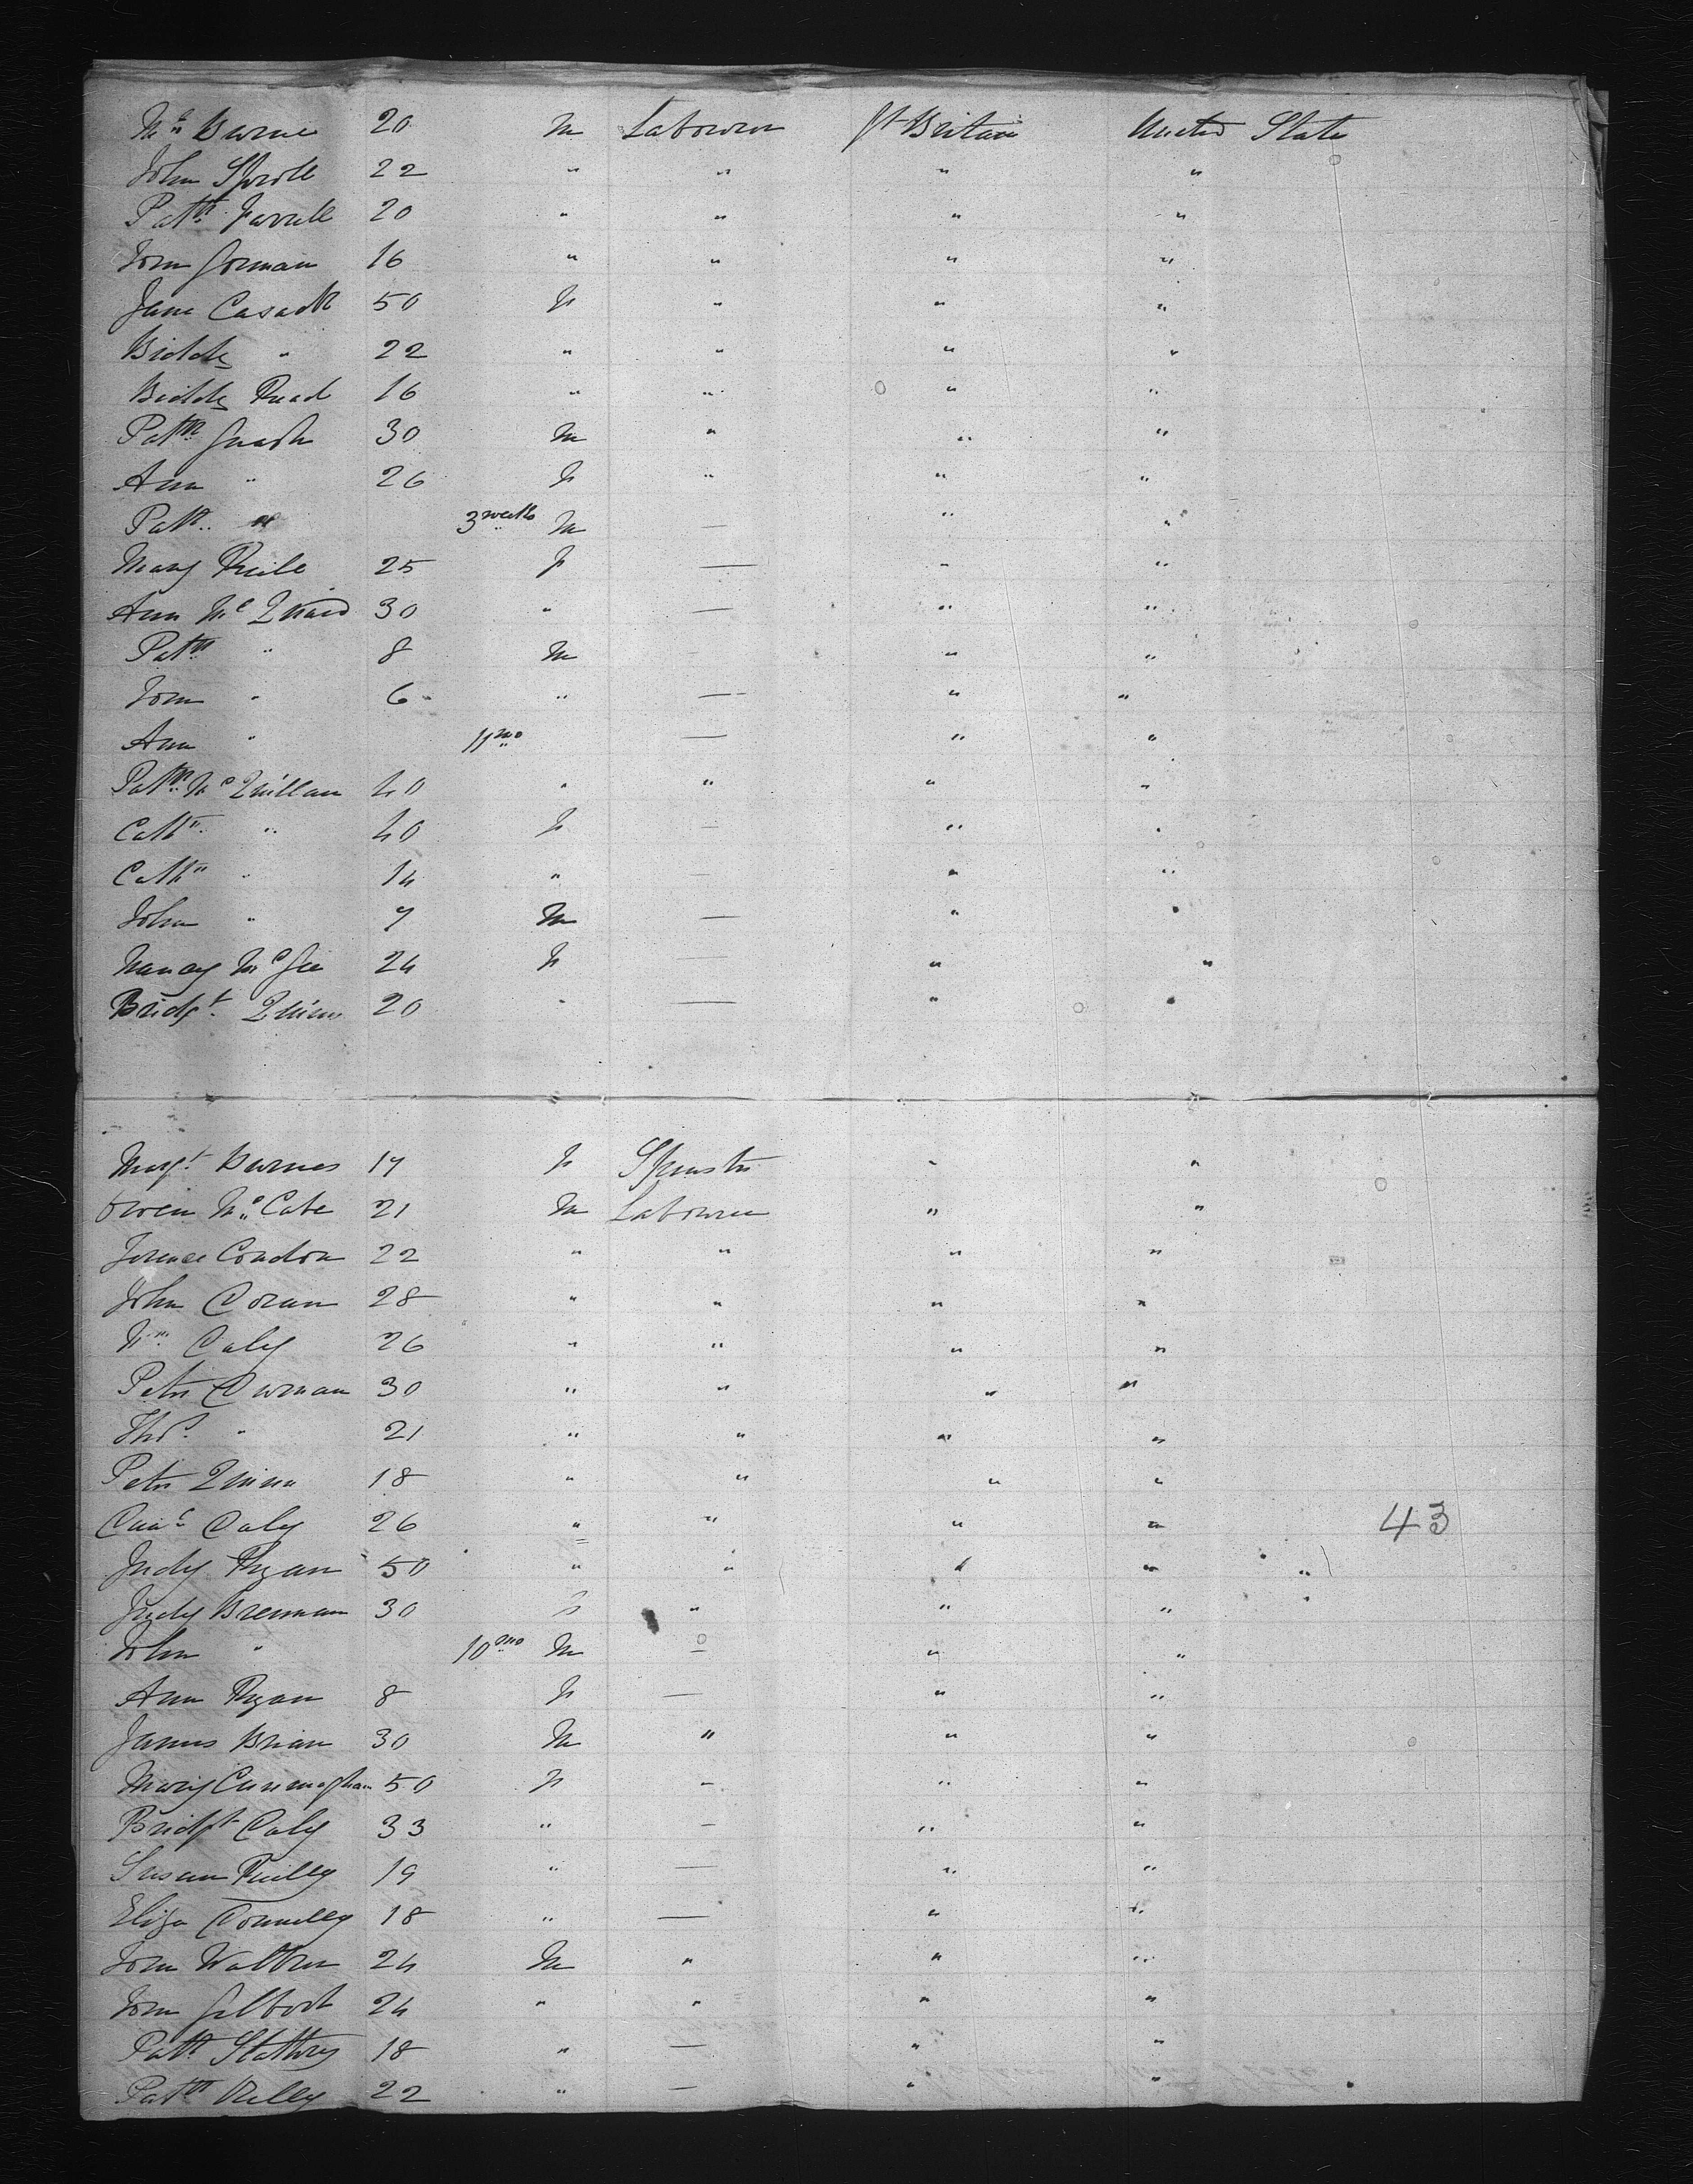 Burne 20 M Labourer Gt Britain United State
John Sproll 22 " " " "
Patk Farrell 20 " " " "
Tom Gorman 16 " " " "
Jane Casack 50 F " " "
Biddy " 22 " " " "
Biddy Read 16 " " " "
Patk 30 M " " "
Ann " 26 F " " "
Patk " 3 weeks M — " "
Mary Reile 25 F — " "
Ann Mc 30 " — " "
Patk " 8 M - " "
Tom " 6 " — " "
Ann " 11 mo — " "
Patk Mc Quillan 40 " " " "
Cathn " 40 F — " "
Cathn " 14 " — " "
John " 7 M — " "
Nancy Mc Gee 24 F — " "
Bridgt Quinn 20 " — " "
Margt Burnes 17 F Spinster " "
Owen Mc Cabe 21 M Labourer " "
Terence Condon 22 " " " "
John Doran 28 " " " "
Wm Daly 26 " " " "
Peter Curnan 30 " " " "
Thos " 21 " " " "
Peter Quinn 18 " " " "
Daly 26 " " " " 43
Judy Ryan 50 " " " " "
Judy Brennan 30 F " " " "
John " 10 mo M — " "
Ann Ryan 8 F — " "
James Brian 30 M " " "
Mary Cunningham 50 F - " "
Bridgt Daly 33 " - " "
Susan Reilly 19 " — " "
Eliza Connelly 18 " — " "
Tom Walther 24 M " " "
Tom Gilbert 24 " " " "
Patk Slattery 18 " — " "
Patk Rielly 22 " — " "